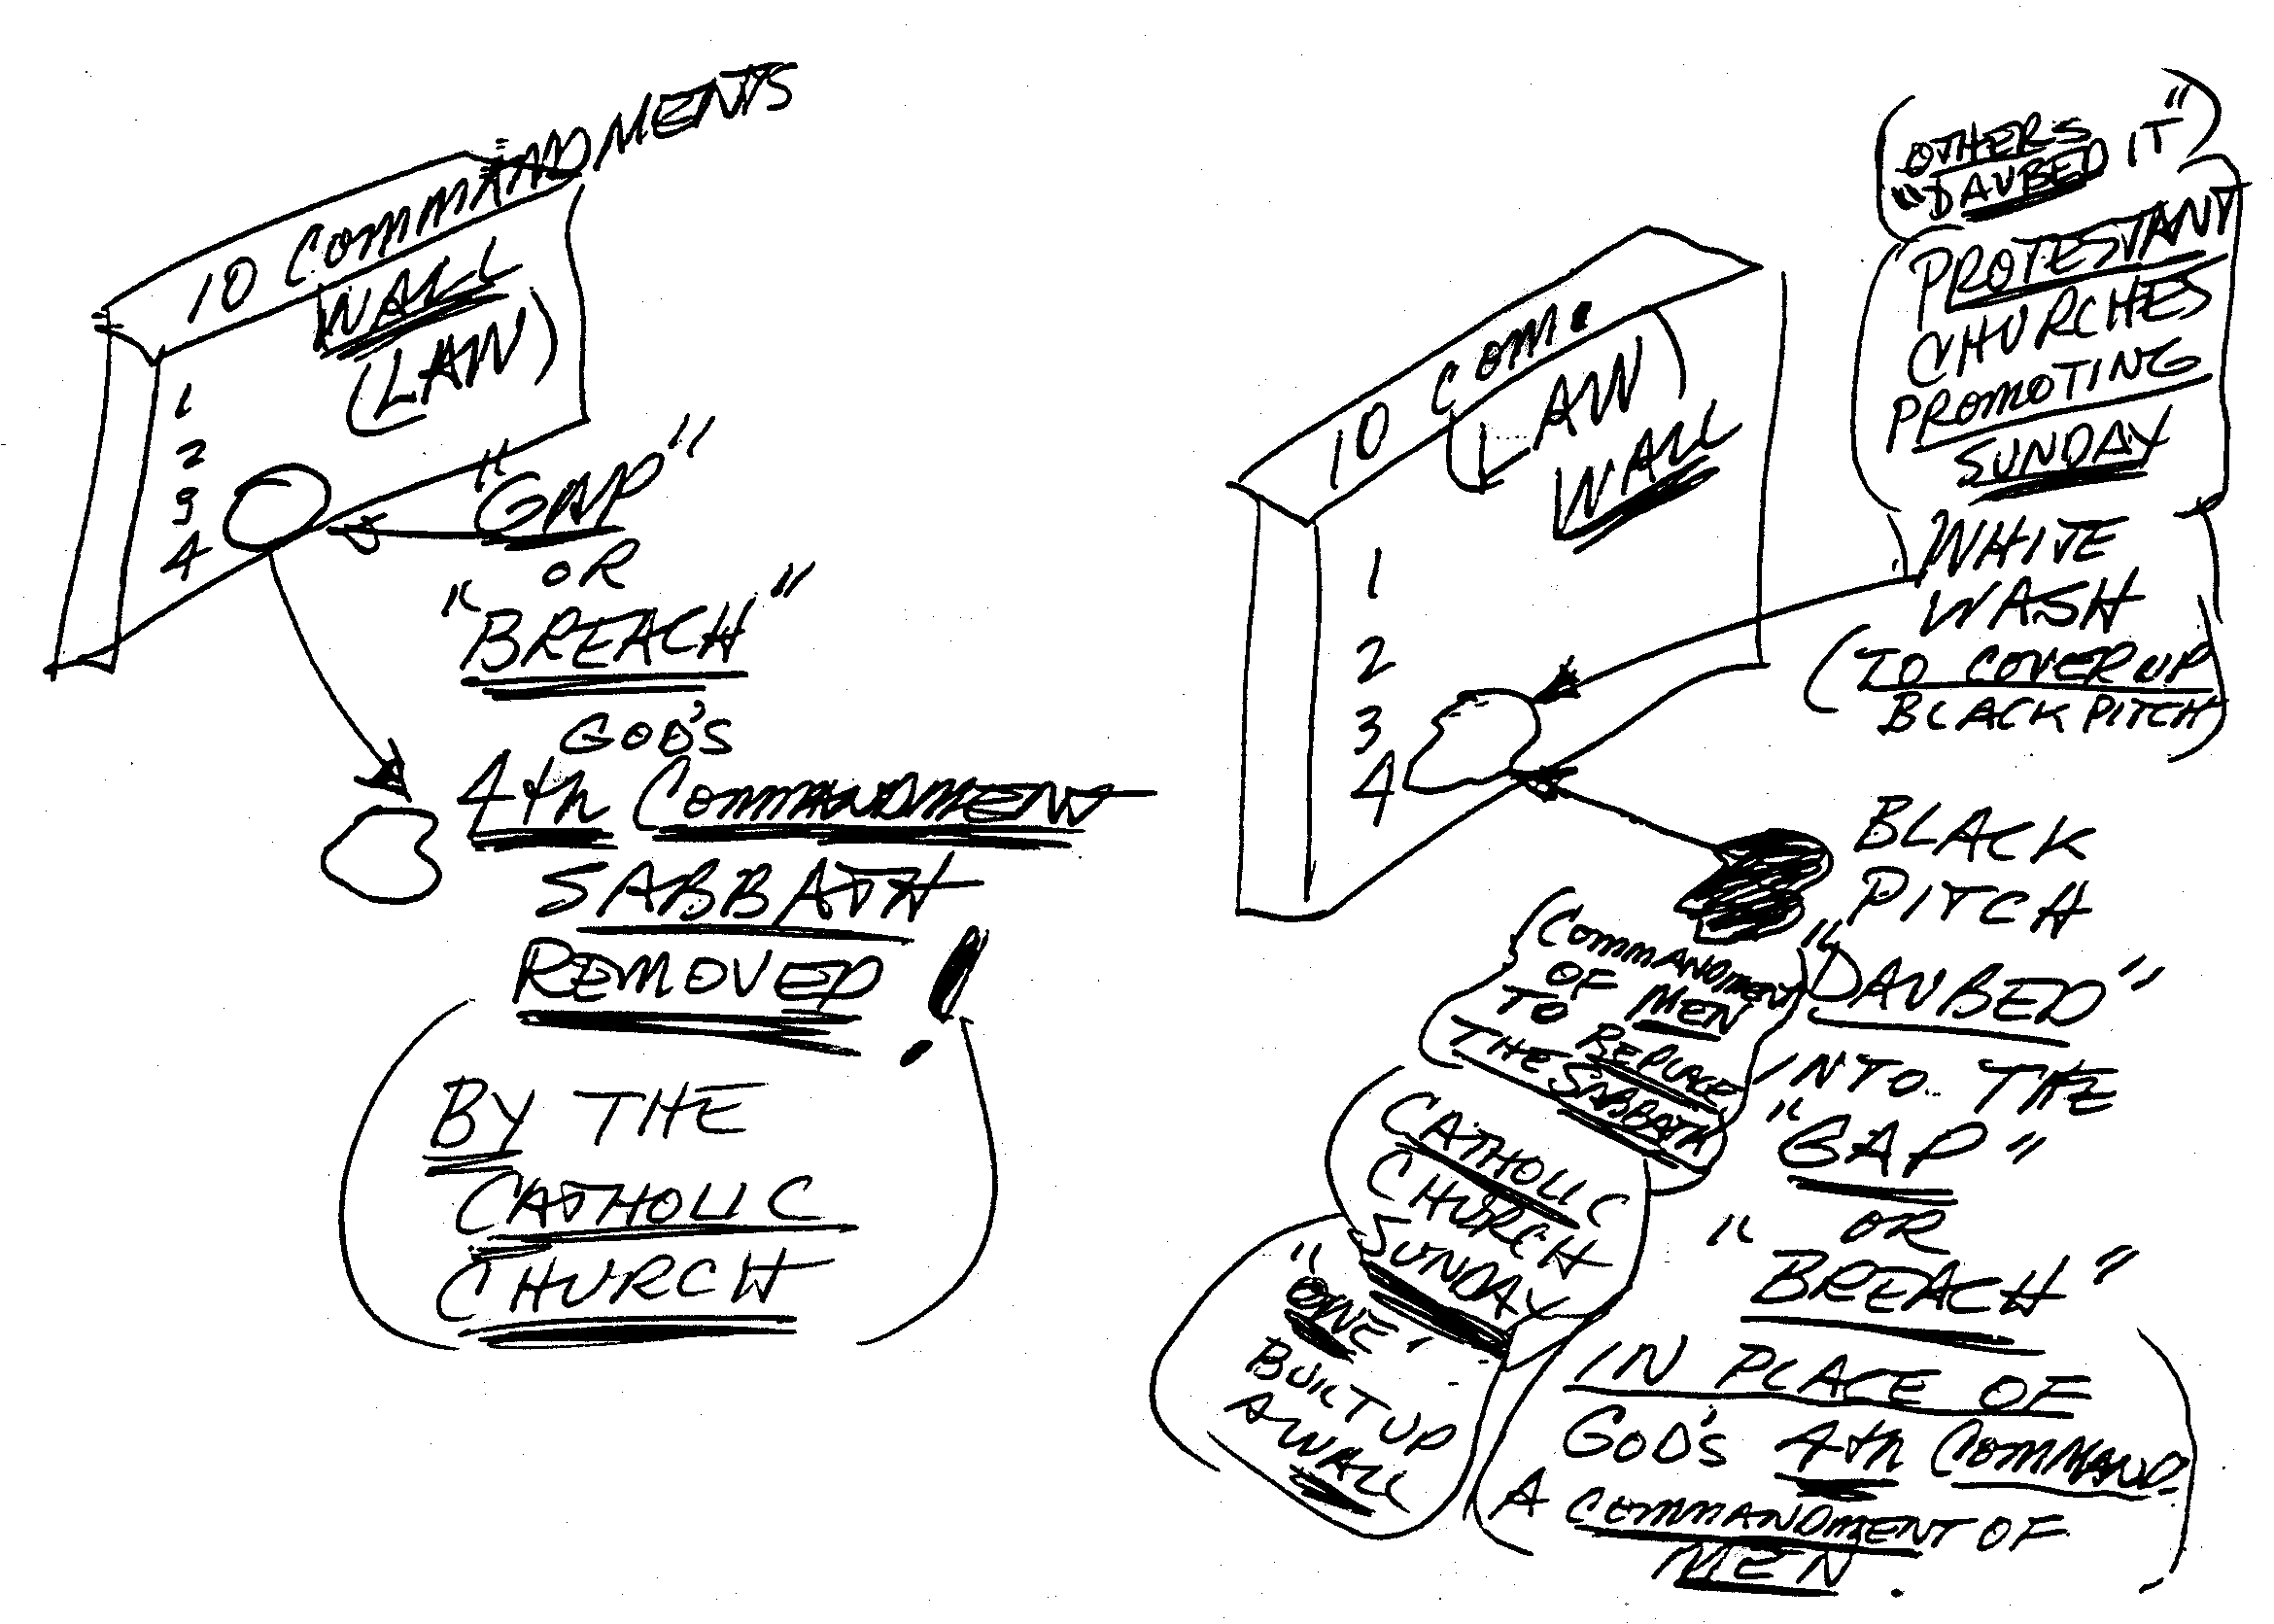 10 COMMANDMENTS
WALL
(LAW)
1
2
3
4
"GAP"
OR
"BREACH"
GOD'S
4th COMMANDMENT
SABBATH
REMOVED!
(BY THE
CATHOLIC
CHURCH)
10 COM.
(LAW)
WALL
1
2
3
4
(OTHERS
"DAUBED IT")
(PROTESTANT
CHURCHES
PROMOTING
SUNDAY)
WHITE
WASH
(TO COVER UP
BLACK PITCH)
BLACK
PITCH
"DAUBED"
INTO THE
"GAP"
OR
"BREACH"
(IN PLACE OF
GOD'S 4th COMMAND-
A COMMANDMENT OF
MEN.)
(COMMANDMENT
OF MEN
TO REPLACE
THE SABBATH)
(CATHOLIC
CHURCH
SUNDAY)
("ONE"
BUILT UP
A WALL)